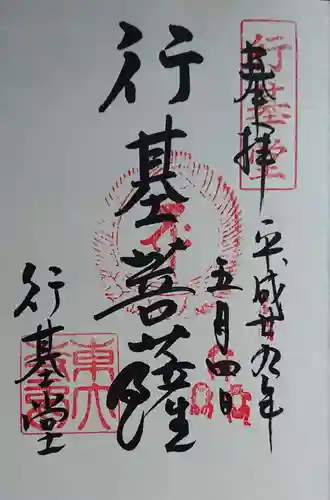 奉拝
行基堂
平成廿九年
五月四日
行基菩薩
行基堂
東大寺